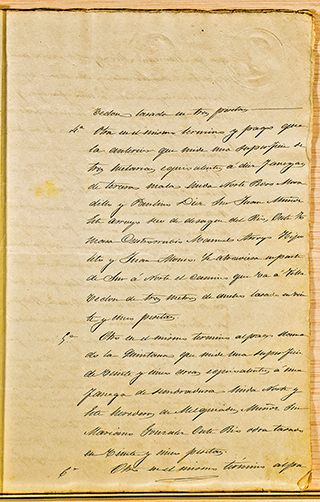 tasada en tres pesetas
4ª Otra en el mismo termino y pago que
la anterior que mide una superficie de
tres hectareas, equivalentes a diez fanegas
de tercera mala linda Norte
y Paulino Diez Sur Juan Muñoz
Este arroyo de desague del Rio, Oeste
Manuel Arroyo
y Juan Alonso. La atraviesa en parte
de Sur a Norte el Camino que va a Villa
de tres metros de ancho tasada en vein
te y tres pesetas
5ª Otra en el mismo termino al pago
de la Quintana que mide una superficie
de veinte y tres areas equivalentes a una
fanega de sembradura linda Norte y
Este herederos de Melquiades Muñoz Sur
Mariano Gonzalez Oeste Rio otra tasada
en veinte y tres pesetas
6ª Otra en el mismo término al pa